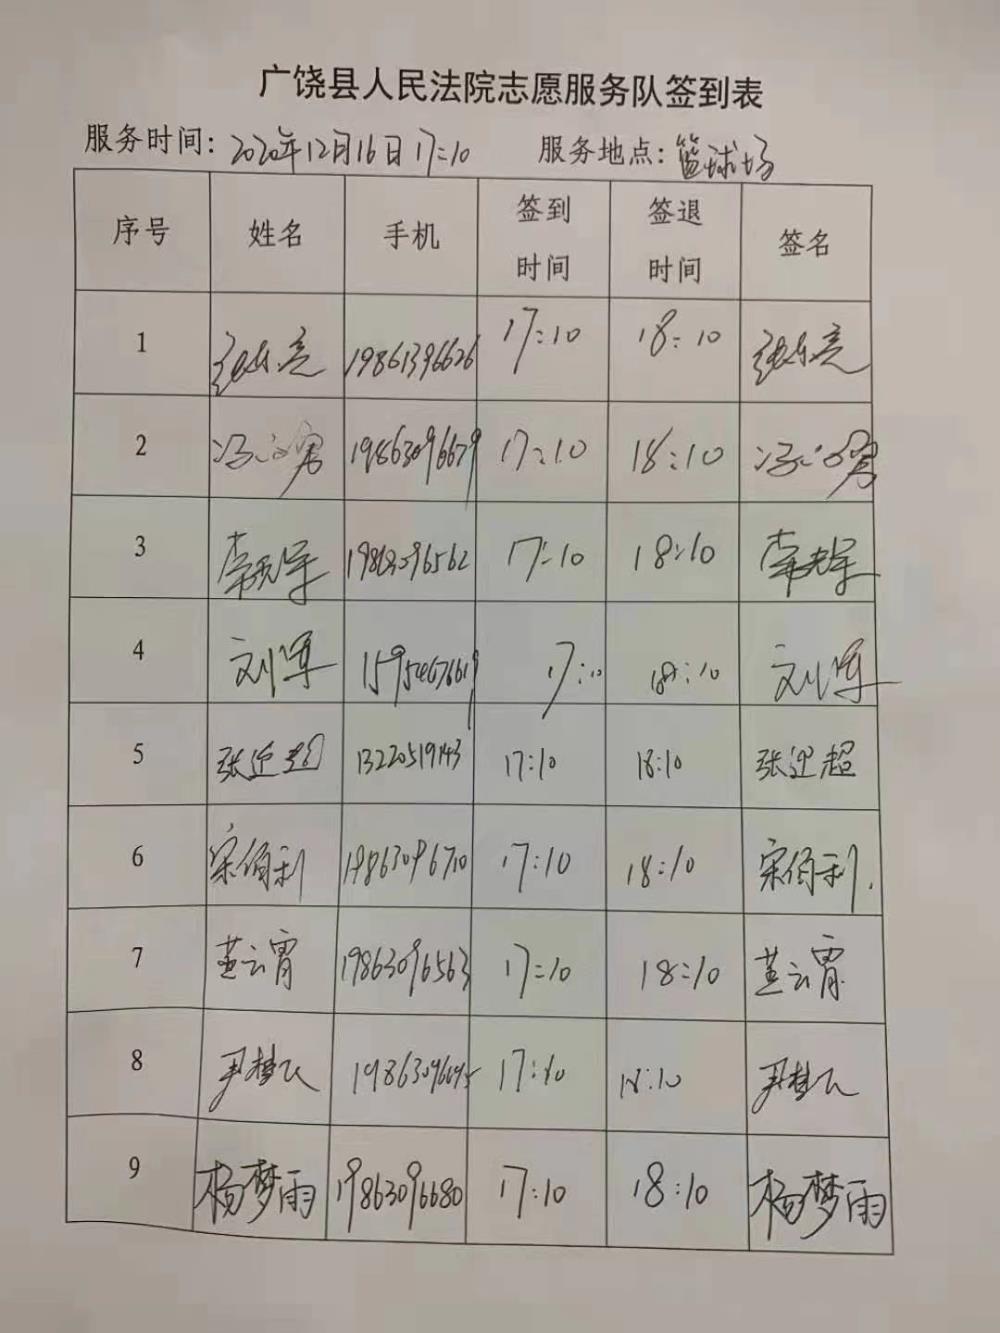 广饶县人民法院志愿服务队签到表
服务时间：2020年12月16日 17:10 服务地点：篮球场
序号 姓名 手机 签到时间 签退时间 签名
1 张东亮 19861396626 17:10 18:10 张东亮
2 19863096679 17:10 18:10
3 19863096562 17:10 18:10
4 刘军 17:10 18:10 刘军
5 张迎超 13220519143 17:10 18:10 张迎超
6 宋佰利 19863096710 17:10 18:10 宋佰利
7 董云霄 19863096563 17:10 18:10 董云霄
8 尹梦飞 17:10 18:10 尹梦飞
9 杨梦雨 19863096680 17:10 18:10 杨梦雨